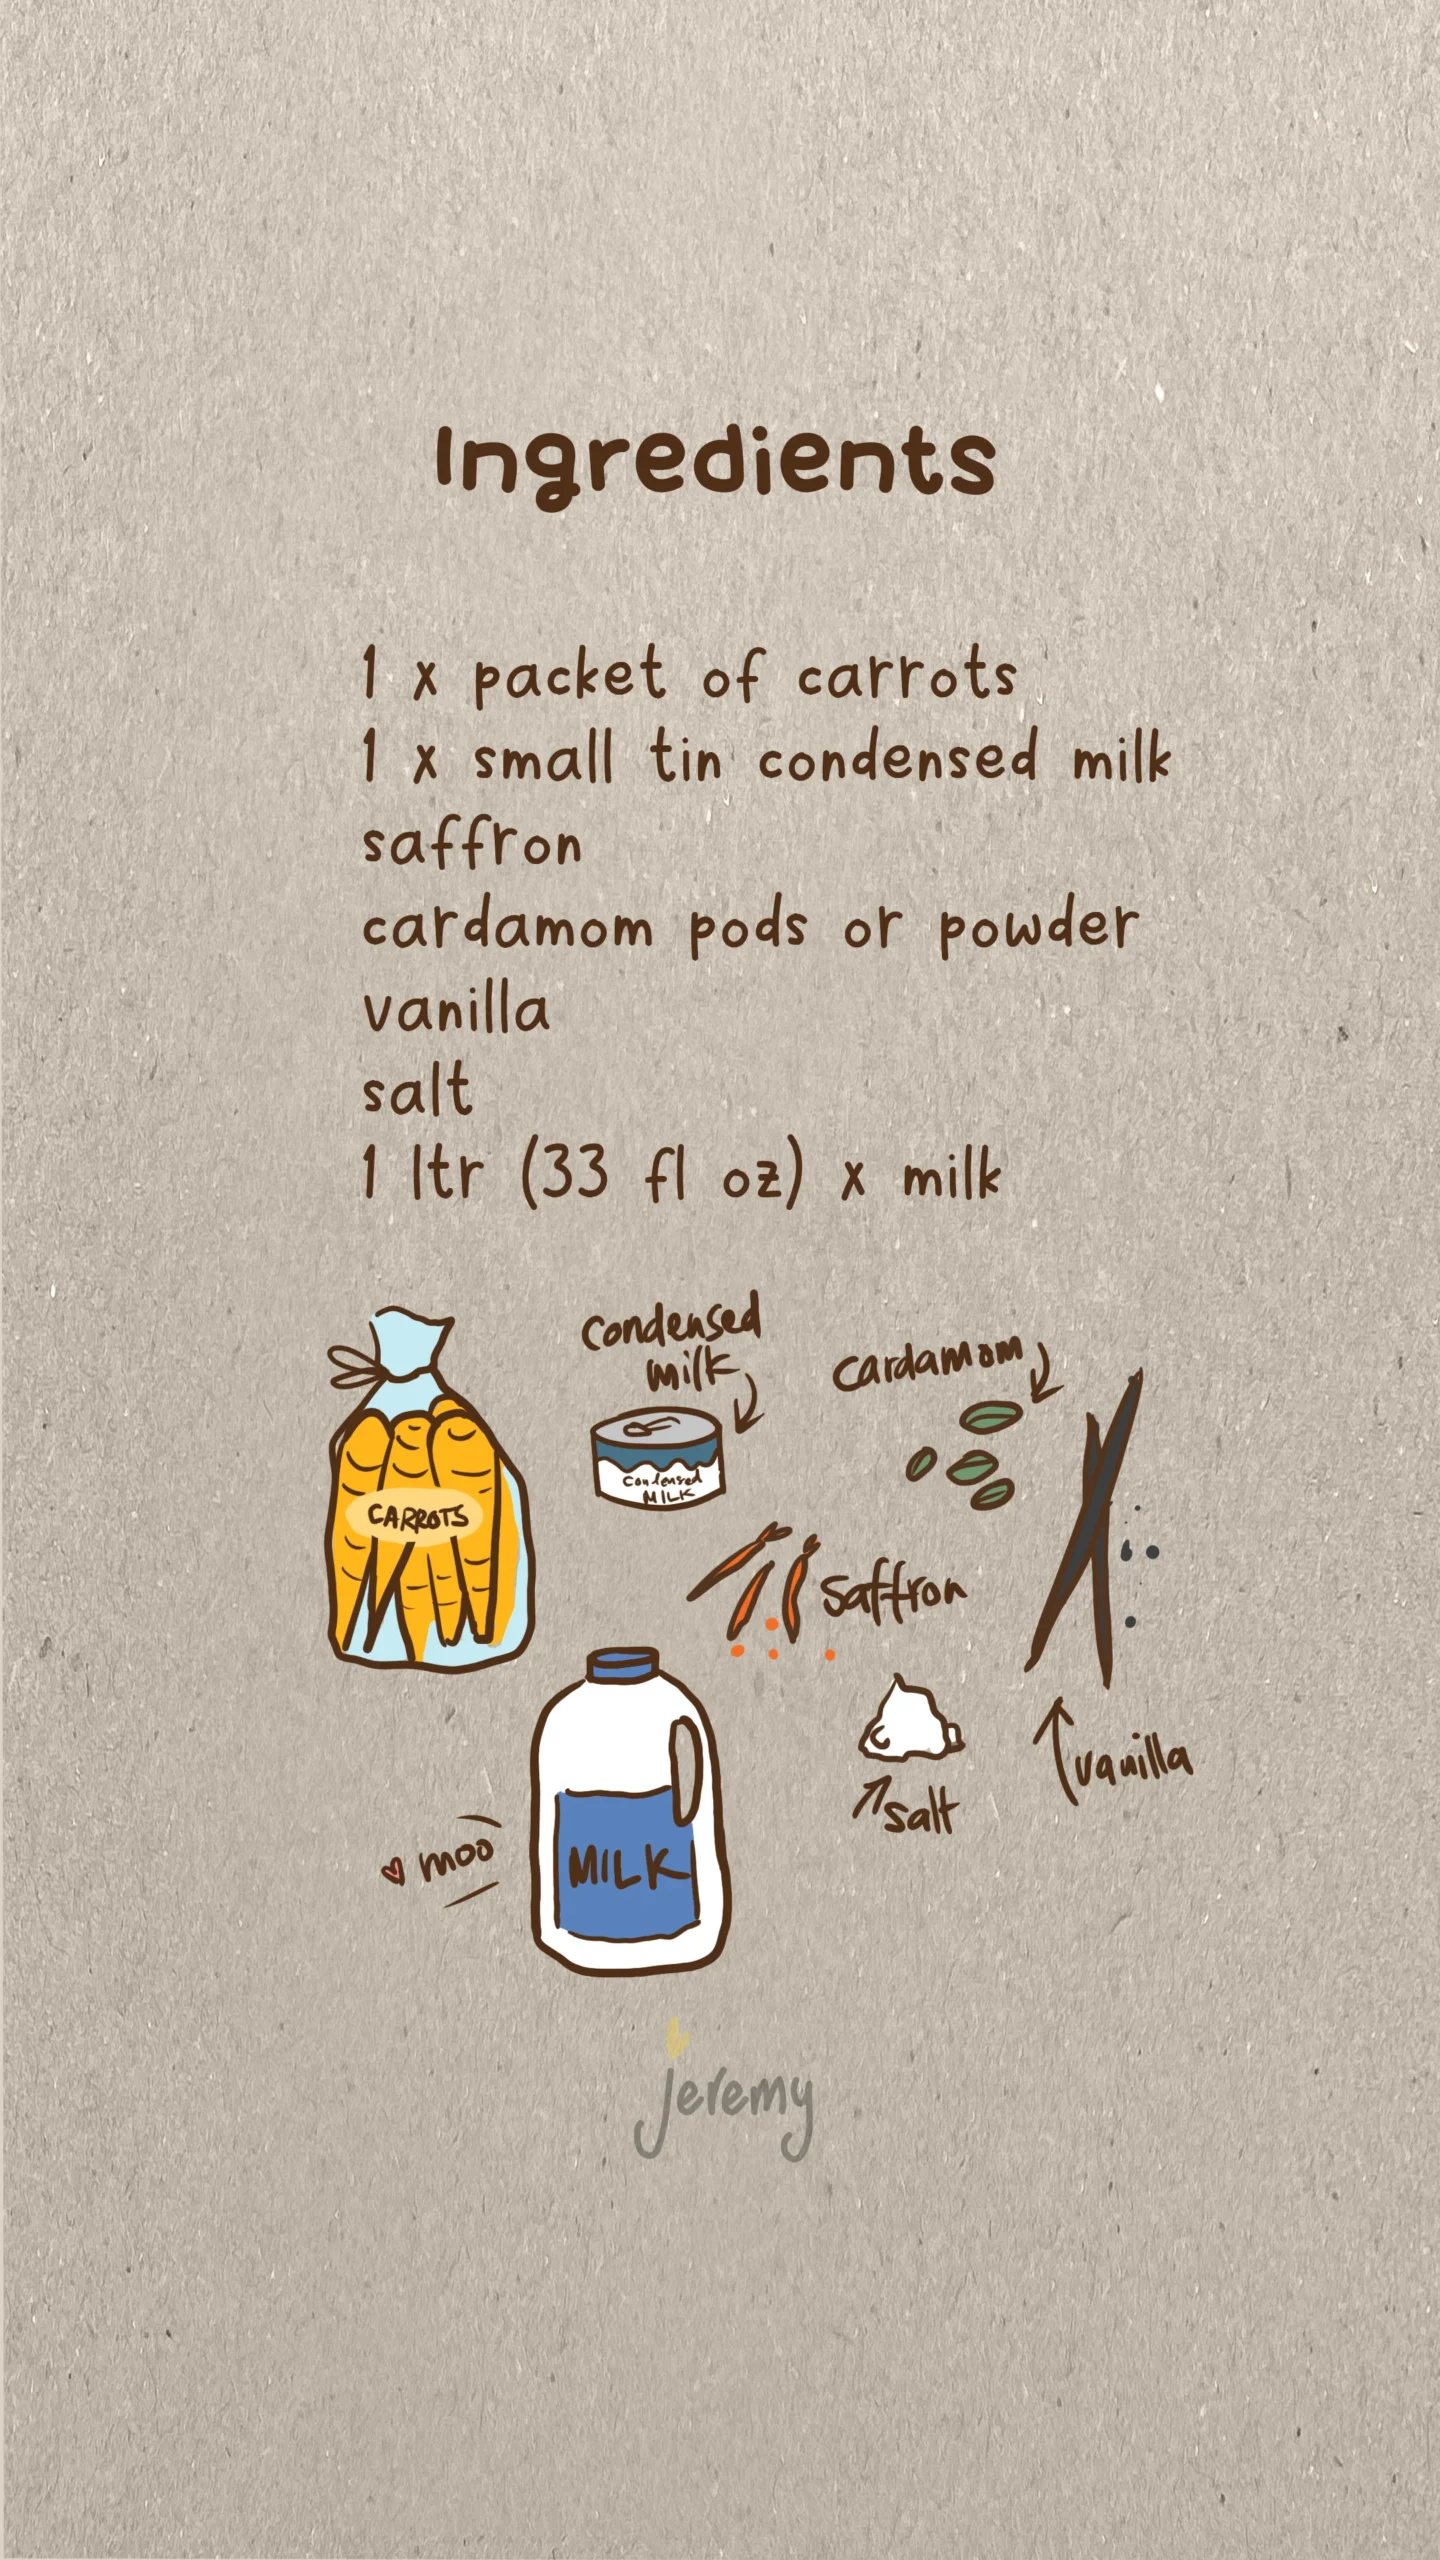 Ingredients
1 x packet of carrots
1 x small tin condensed milk
saffron
cardamom pods or powder
vanilla
salt
1 ltr (33 fl oz) x milk
condensed
milk
cardamom
condensed
MILK
CARROTS
saffron
vanilla
salt
moo
MILK
jeremy